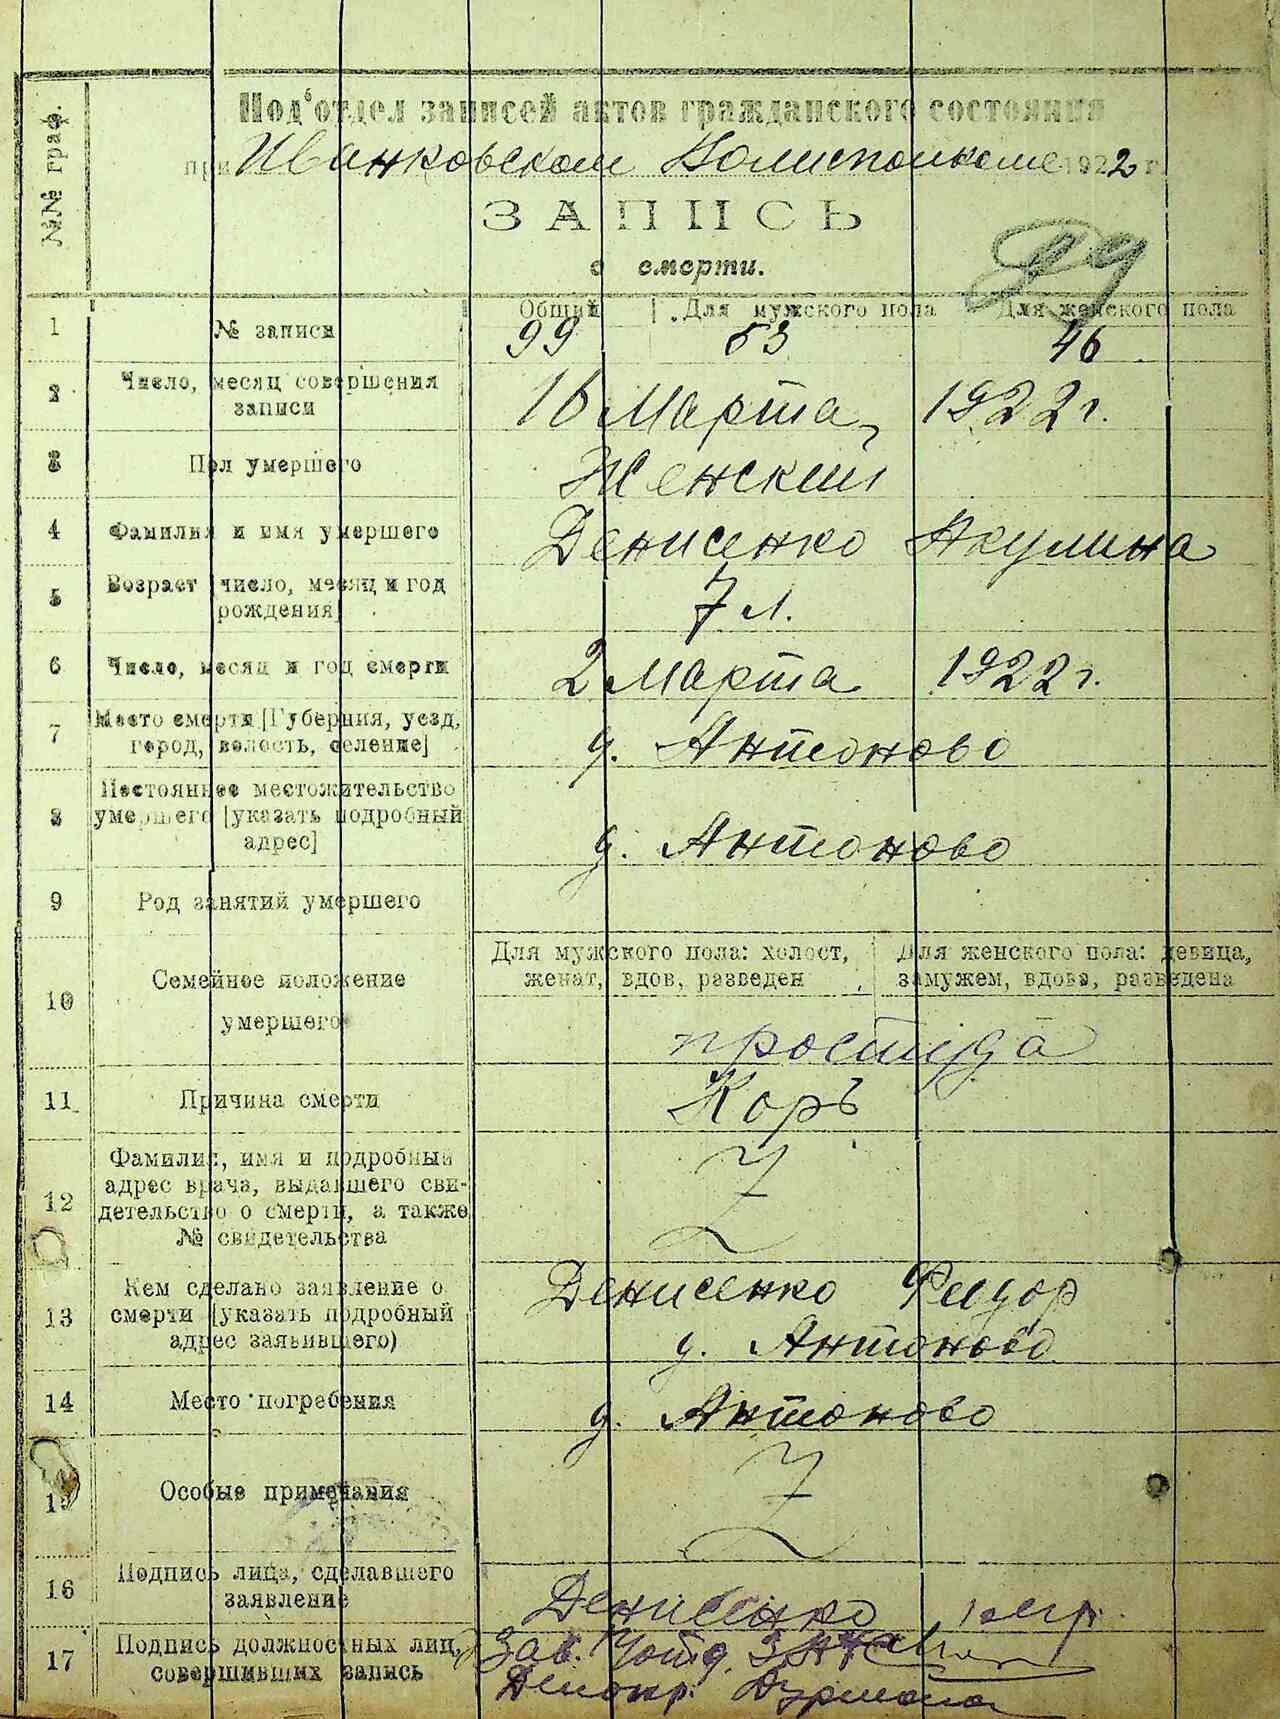 Под‘отдел записей актов гражданского состояния
при Иванковском Волисполкоме 1922 г.
ЗАПИСЬ
о смерти.
99
№№ граф.
Общий Для мужского пола Для женского пола
1 № записи 99 53 46
2 Число, месяц совершения записи 16 Марта 1922 г.
3 Пол умершего Женский
4 Фамилия и имя умершего Денисенко Акулина
5 Возраст [число, месяц и год рождения] 7 л.
6 Число, месяц и год смерти 2 Марта 1922 г.
7 Место смерти [Губерния, уезд, город, волость, селение] д. Антоново
8 Постоянное местожительство умершего [указать подробный адрес] д. Антоново
9 Род занятий умершего
10 Семейное положение умершего
Для мужского пола: холост, женат, вдов, разведен
Для женского пола: девица, замужем, вдова, разведена
простуда
11 Причина смерти Корь
12 Фамилия, имя и подробный адрес врача, выдавшего свидетельство о смерти, а также № свидетельства
13 Кем сделано заявление о смерти [указать подробный адрес заявившего) Денисенко Федор
д. Антоново
14 Место погребения д. Антоново
15 Особые примечания
16 Подпись лица, сделавшего заявление Денисенко
17 Подпись должностных лиц, совершивших запись Зав.
Делопр.